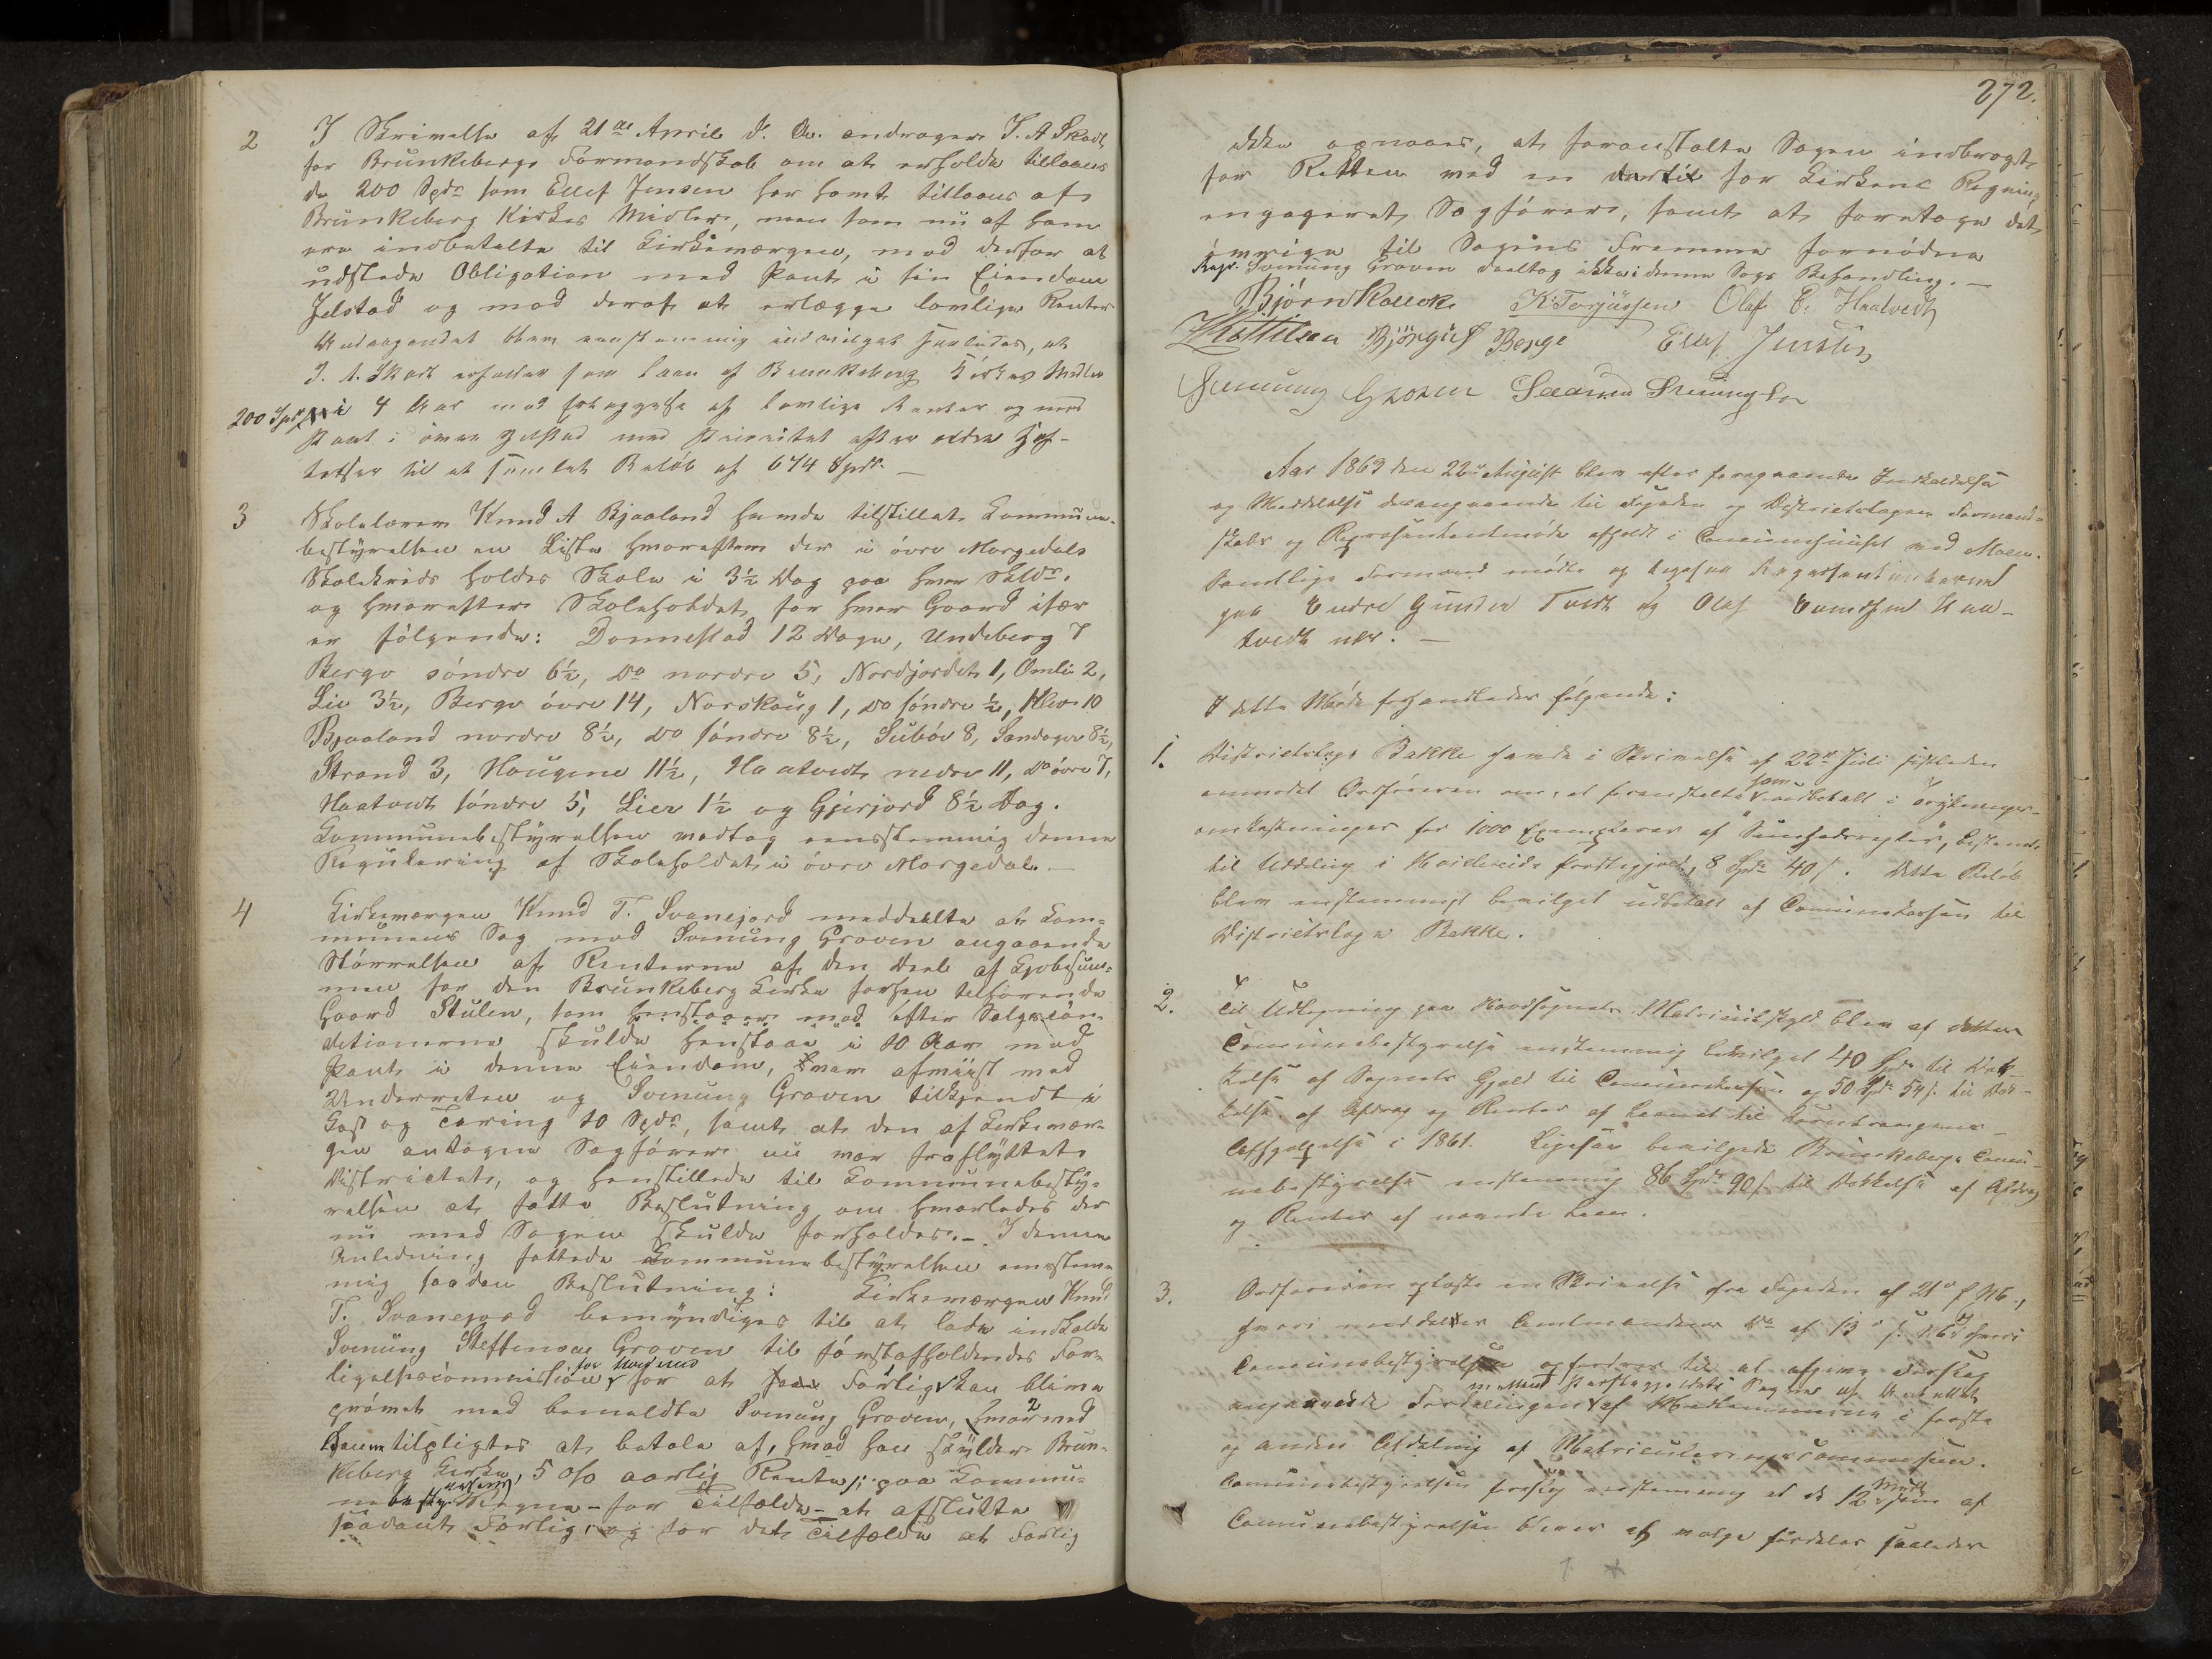 2 I Skrivelse af 21de April d. A. andrager J. A Skadt
for Brunkebergs Formandskab om at erholde tillaans
de 200 Spdr som Ellef Jensen har havt tillaans af
Brunkeberg Kirkes Midler, men som nu af ham
ere indbetalte til Kirkeværgen, mod derfor at
udstede Obligation med Pant i sin Eiendom
Jelstad og mod deraf at erlægge lovlige Renter
Andragendet blev eenstemmig indvilget saaledes, at
J. A. Skadt erholder som Laan af Brunkeberg Kirkes Midler
200 Spdr i 4 Aar mod Erlæggelse af lovlige Renter og mod
Pant i Jelstad med Prioritet efter ældre Hef-
telser til et samlet Beløb af 674 Spdr. —
3 Skolelærer Knud A Bjaaland havde tilstillet Commune-
bestyrelsen en Liste hvorefter der i øvre Morgedals
Skolekreds holdes Skole i 3½ Dag paa hver Skldr.
og hvorefter Skoleholdet for hver Gaard især
er følgende: Donnestad 12 Dage, Undeberg 7
Berge søndre 6½, Do nordre 5, Nordjordet 1, Omli 2,
Lie 3½, Berge øvre 14, Norskaug 1, do søndre ½, Kleve 10
Bjaaland nordre 8½, do søndre 8½, Subøe 8, Sandager 8½,
Strand 3, Haugene 11½, Haatvedt nedre 11, do øvre 7,
Haatvedt søndre 5, Lier 1½ og Gjerjord 8½ Dag.
Kommunebestyrelsen vedtog eenstemmig denne
Regulering af Skoleholdet i øvre Morgedal. —
4 Kirkeværgen Knud T. Svanejord meddeelte at Kom-
munens Sag mod Svenung Groven angaaende
Størrelsen af Renterne af den Deel af Kjøbesum-
men for den Brunkeberg Kirke forhen tilhørende
Gaard Stulen, som henstaaer med efter Salgscon-
ditionerne skulde henstaae i 10 Aar mod
Pant i denne Eiendom, var afviist ved
Underretten og Svenung Groven tilkjendt i
Kost og Tæring 10 Spdr, samt at den af Kirkevær-
gen antagne Sagfører nu var fraflyttet
Districtet, og henstillede til Kommunebesty-
relsen at fatte Beslutning om hvorledes der
nu med Sagen skulde forholdes. — I denne
Anledning fattede Kommunebestyrelsen eenstem-
mig saadan Beslutning: Kirkeværgen Knud
T. Svanejord bemyndiges til at lade indkalde
Svenung Steffensen Groven til førstafholdendes For-
ligelsescommission for at Forlig kan blive
prøvet med bemeldte Svenung Groven, hvorved
han tilpligtes at betale af, hvad han skylder Brun-
keberg Kirke, 5 o/o aarlig Rente, paa Kommu-
nebestyrelsens Vegne - for Tilfælde - at afslutte
saadant Forlig, og for det Tilfælde at Forlig
272.
ikke opnaaes, at foranstalte Sagen indbragt
for Retten ved en dertil for Kirkens Regning
engageret Sagfører, samt at foretage det
øvrige til Sagens Fremme fornødne
Repr. Svenung Groven deeltog ikke i denne Sags Behandling. —
Bjørn K. Torjussen Olaf E. Haatvedt
Kittilsen Bjørgulf Berge Ellef Jensen
Svenung Groven
Aar 1863 den 22de August blev efter foregaaende Indkaldelse
og Meddelelse desangaaende til Fogden og Districtslægen Formand-
skabs og Repræsentantmøde afholdt i Communehuuset ved Moen.
Samtlige Formænd mødte og ligesaa Repræsentanterne
paa Endre Gunder Tvedt og Olaf Evindsen Haa-
tvedt nær. —
I dette Møde forhandledes følgende:
1. Districtslæge Bakke havde i Skrivelse af 22de Juli sidstleden
anmodet Ordføreren om, at foranstalte udbetalt i Trykknings-
omkostninger for 1000 Exemplarer af "Sundhedsregler", bestemt
til Uddeling i Hvideseids Præstegjæld, 8 Spdr 40 s. Dette Beløb
blev eenstemmigt bevilget udbetalt af Communekassen til
Districtslæge Bakke.
2. Til Udligning paa Hovedsognets Matriculskyld blev af dettes
Communebestyrelse eenstemmig bevilget 40 Spdr til Dæk-
kelse af Sognets Gjæld til Communekassen og 50 Spdr 54 s. til Dæk-
kelse af Afdrag og Renter af Laanet til Korntrangens
Afhjælpelse i 1861. Ligesaa bevilgede Brunkebergs Commu-
nebestyrelse eenstemmig 86 Spdr 90 s til Dækkelse af Afdrag
og Renter af nævnte Laan.
3. Ordføreren oplæste en Skrivelse fra Fogden af 21de f. M.,
hvori meddeles Amtmandens Do af 13de s. M. hvori
Communebestyrelsen opfordres til at afgive Forslag
angaaende Fordelingen mellem Præstegjeldets Sogne af Medlemmerne i første
og anden Afdeling af Matriculeringscommissionen.
Communebestyrelsen foreslog eenstemmig at de 12 som af
Communebestyrelsen bliver at vælge fordeles saaledes